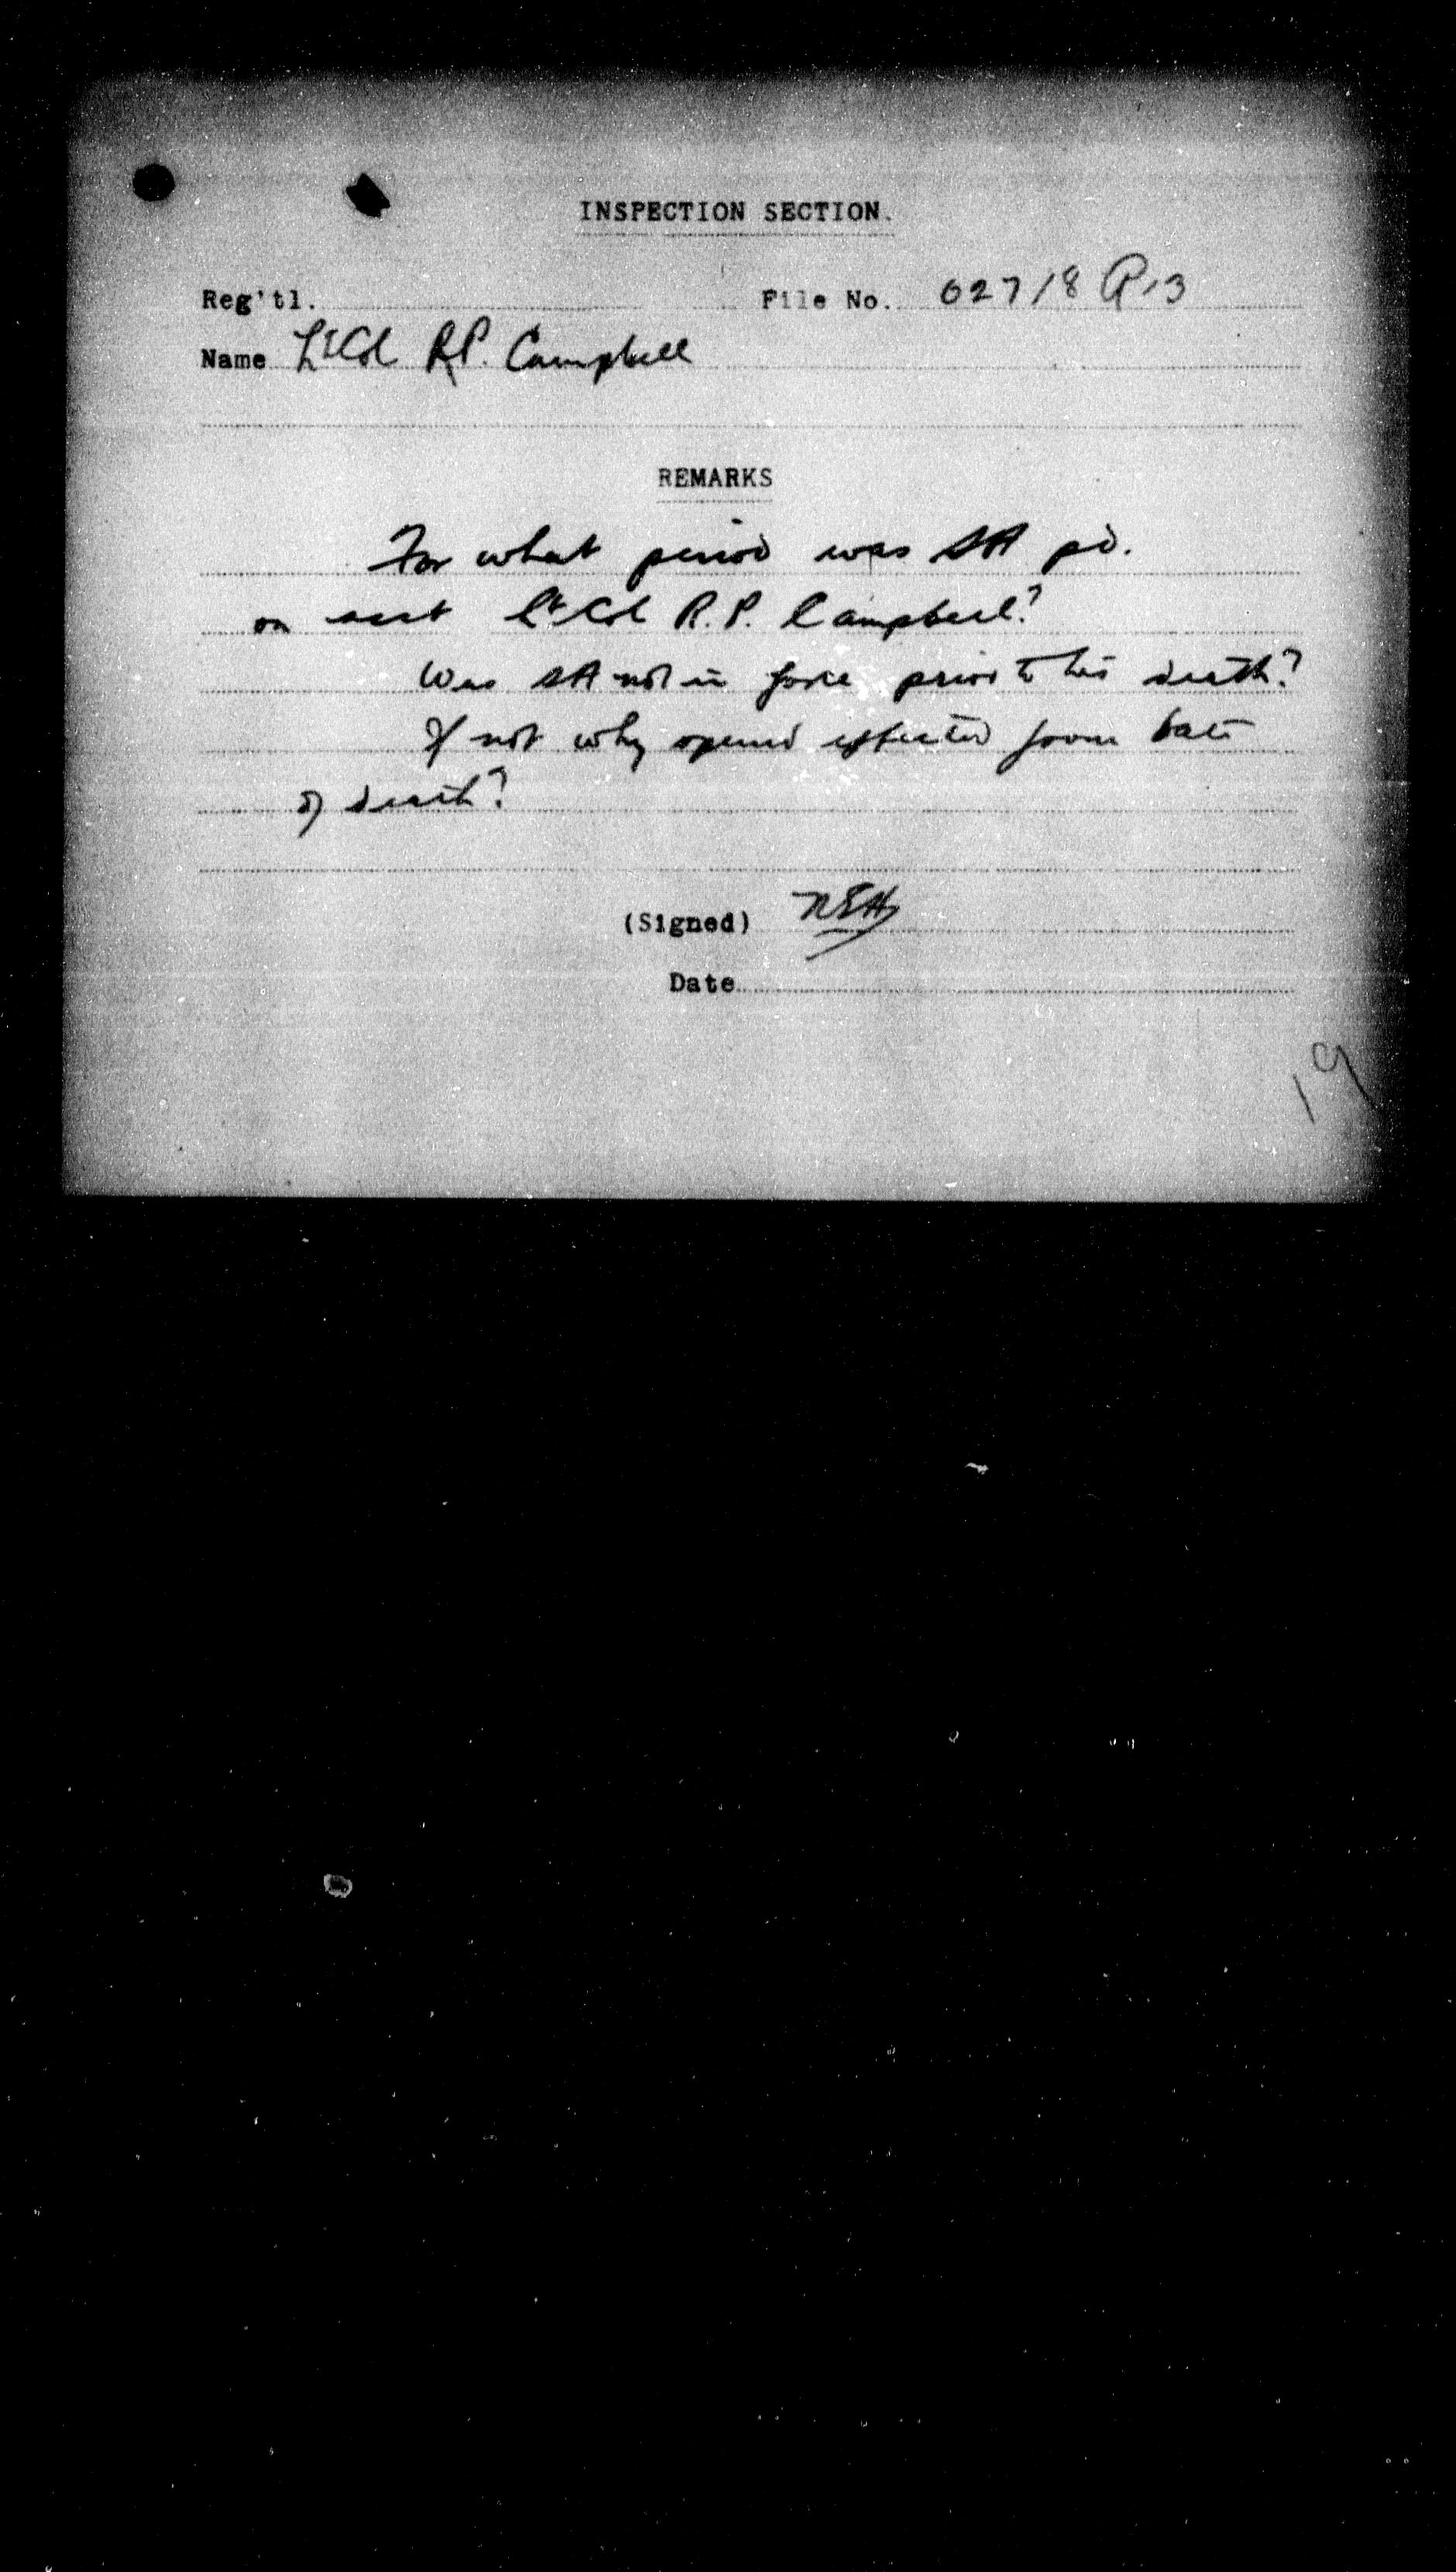 INSPECTION SECTION.
Reg'tl. File No. 62718 R-13
Name Lt Col R.P. Campbell
REMARKS
For what period was SA pd.
on acct Lt Col R.P. Campbell?
Was SA not in force prior to his death?
If not why opened effected from date
of death?
(Signed) NEH
Date
19